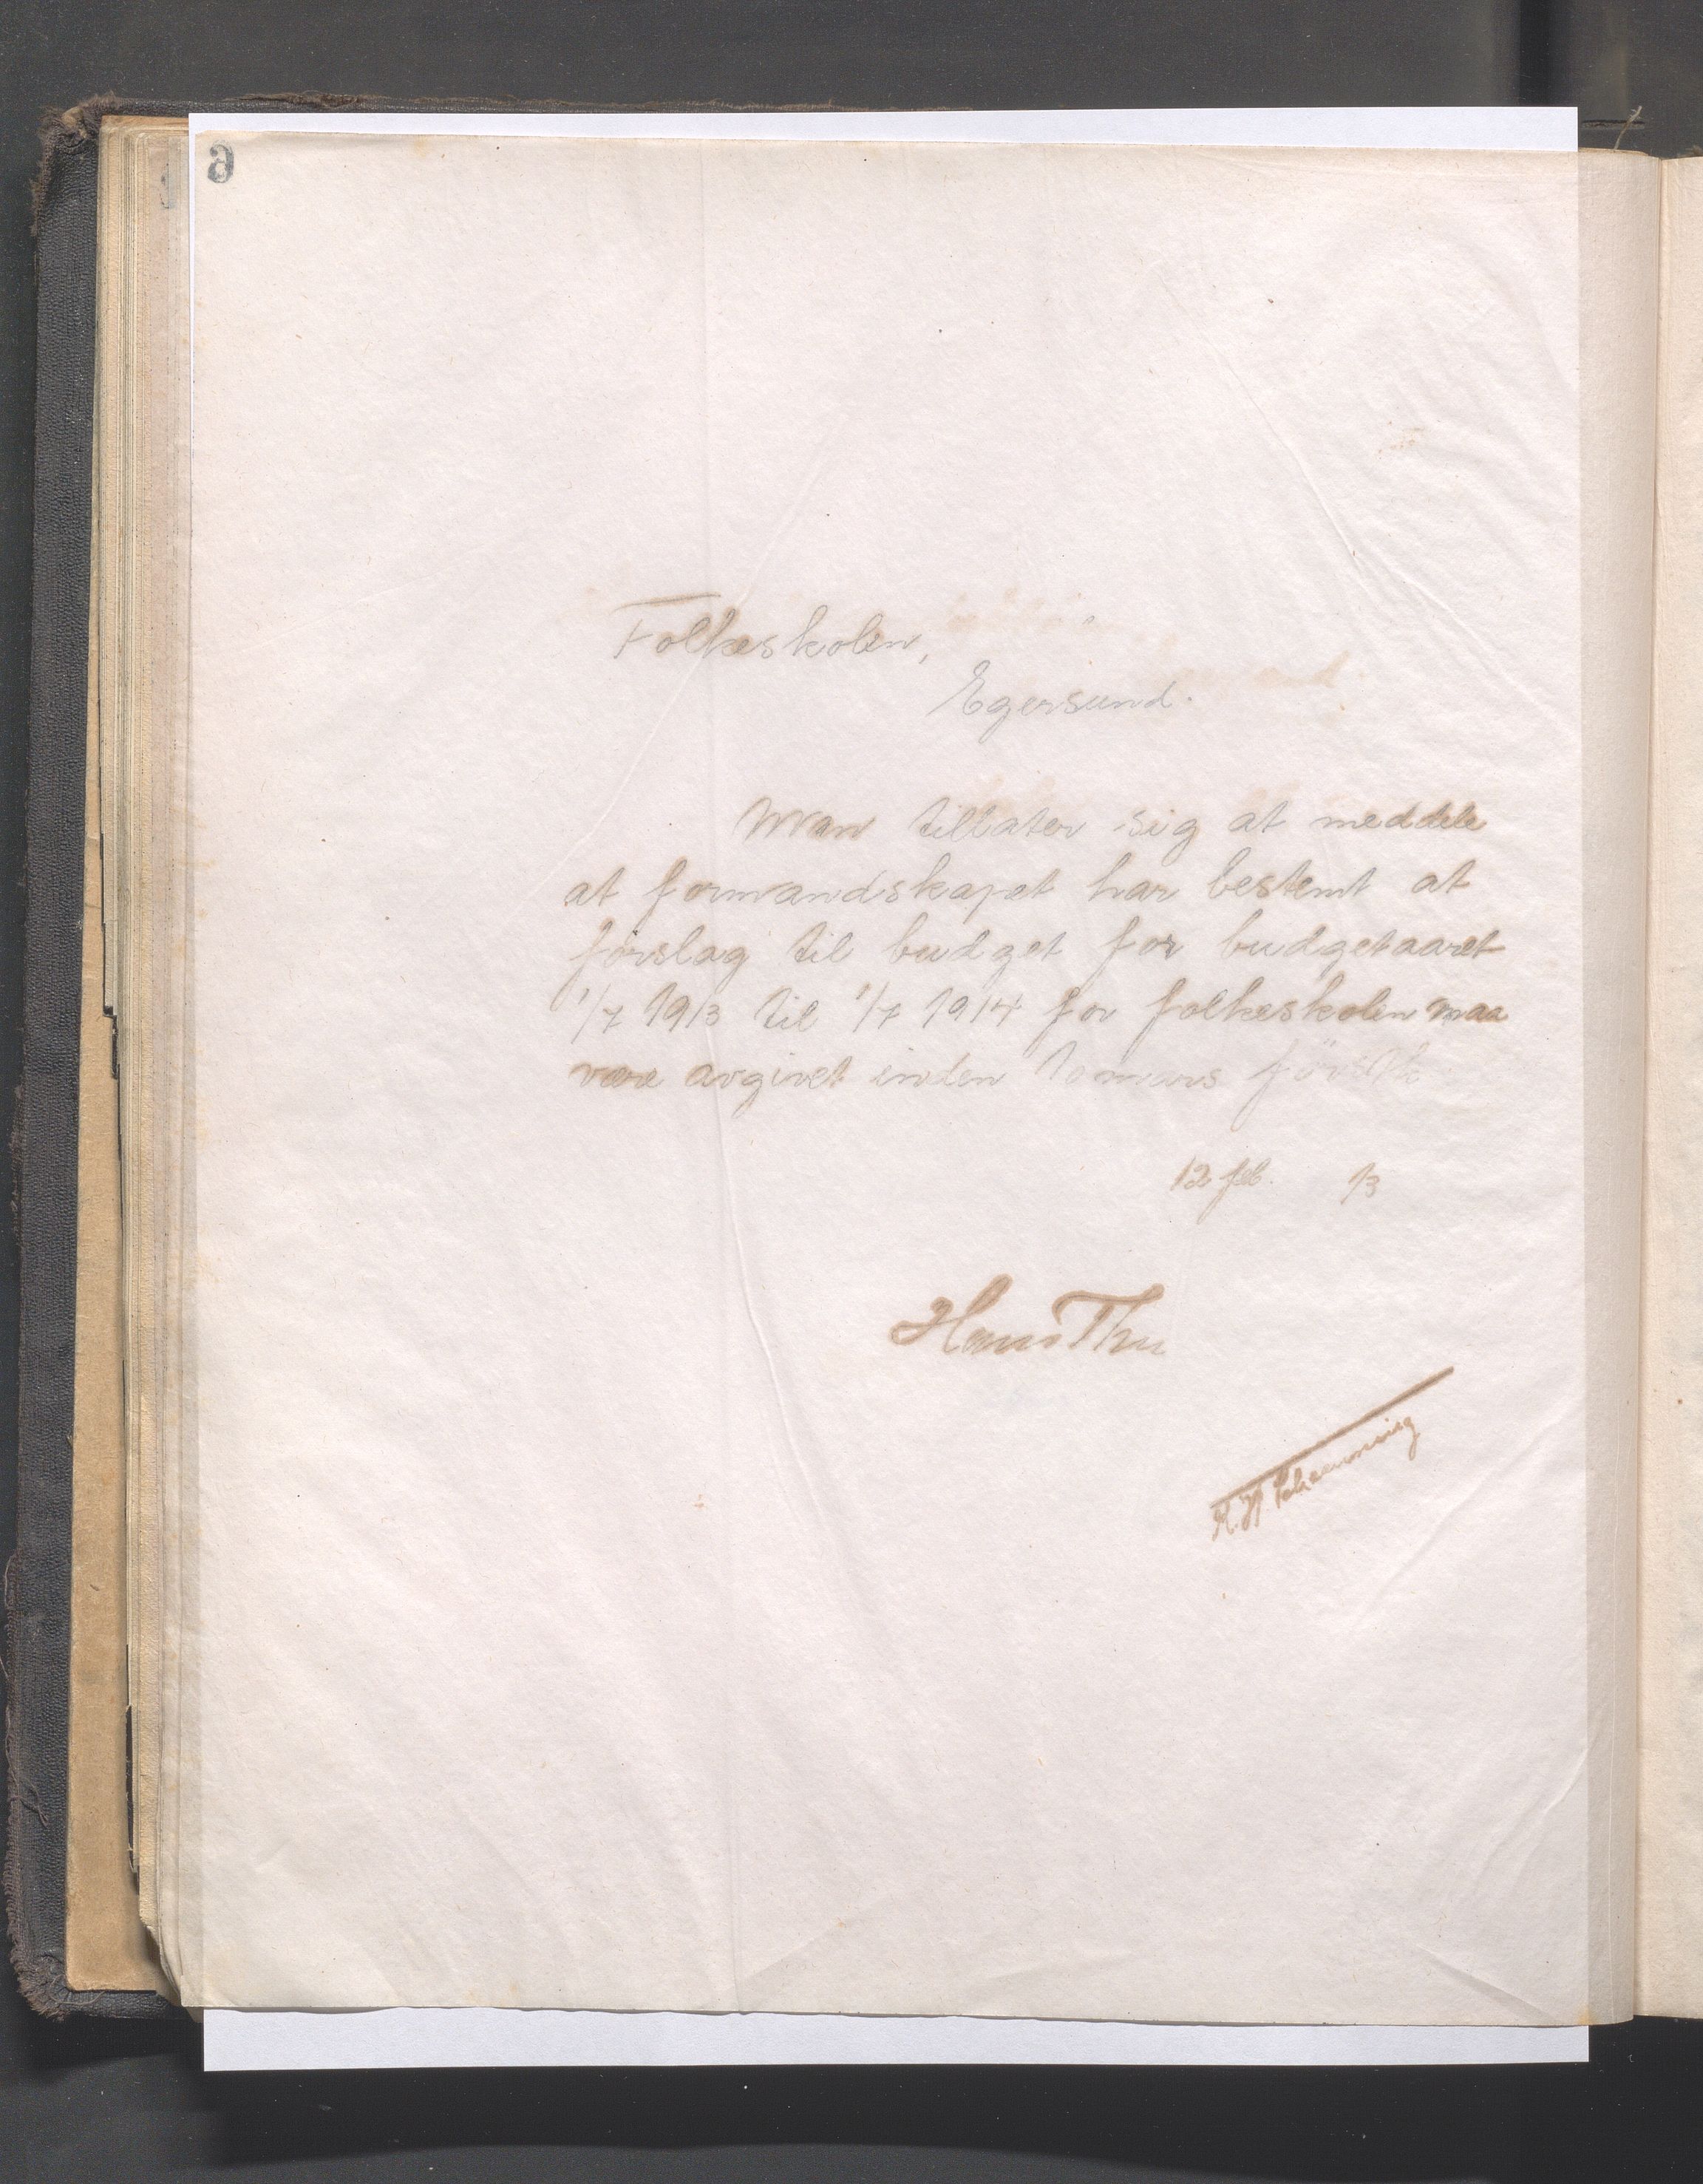 6
Folkeskolen,
Egersund.
Man tillater sig at meddele
at formandskapet har bestemt at
forslag til budget for budgetaaret
1/7 1913 til 1/7 1914 for folkeskolen maa
være avgivet inden 10 mars førstk
12 feb. 13
Hans Thu